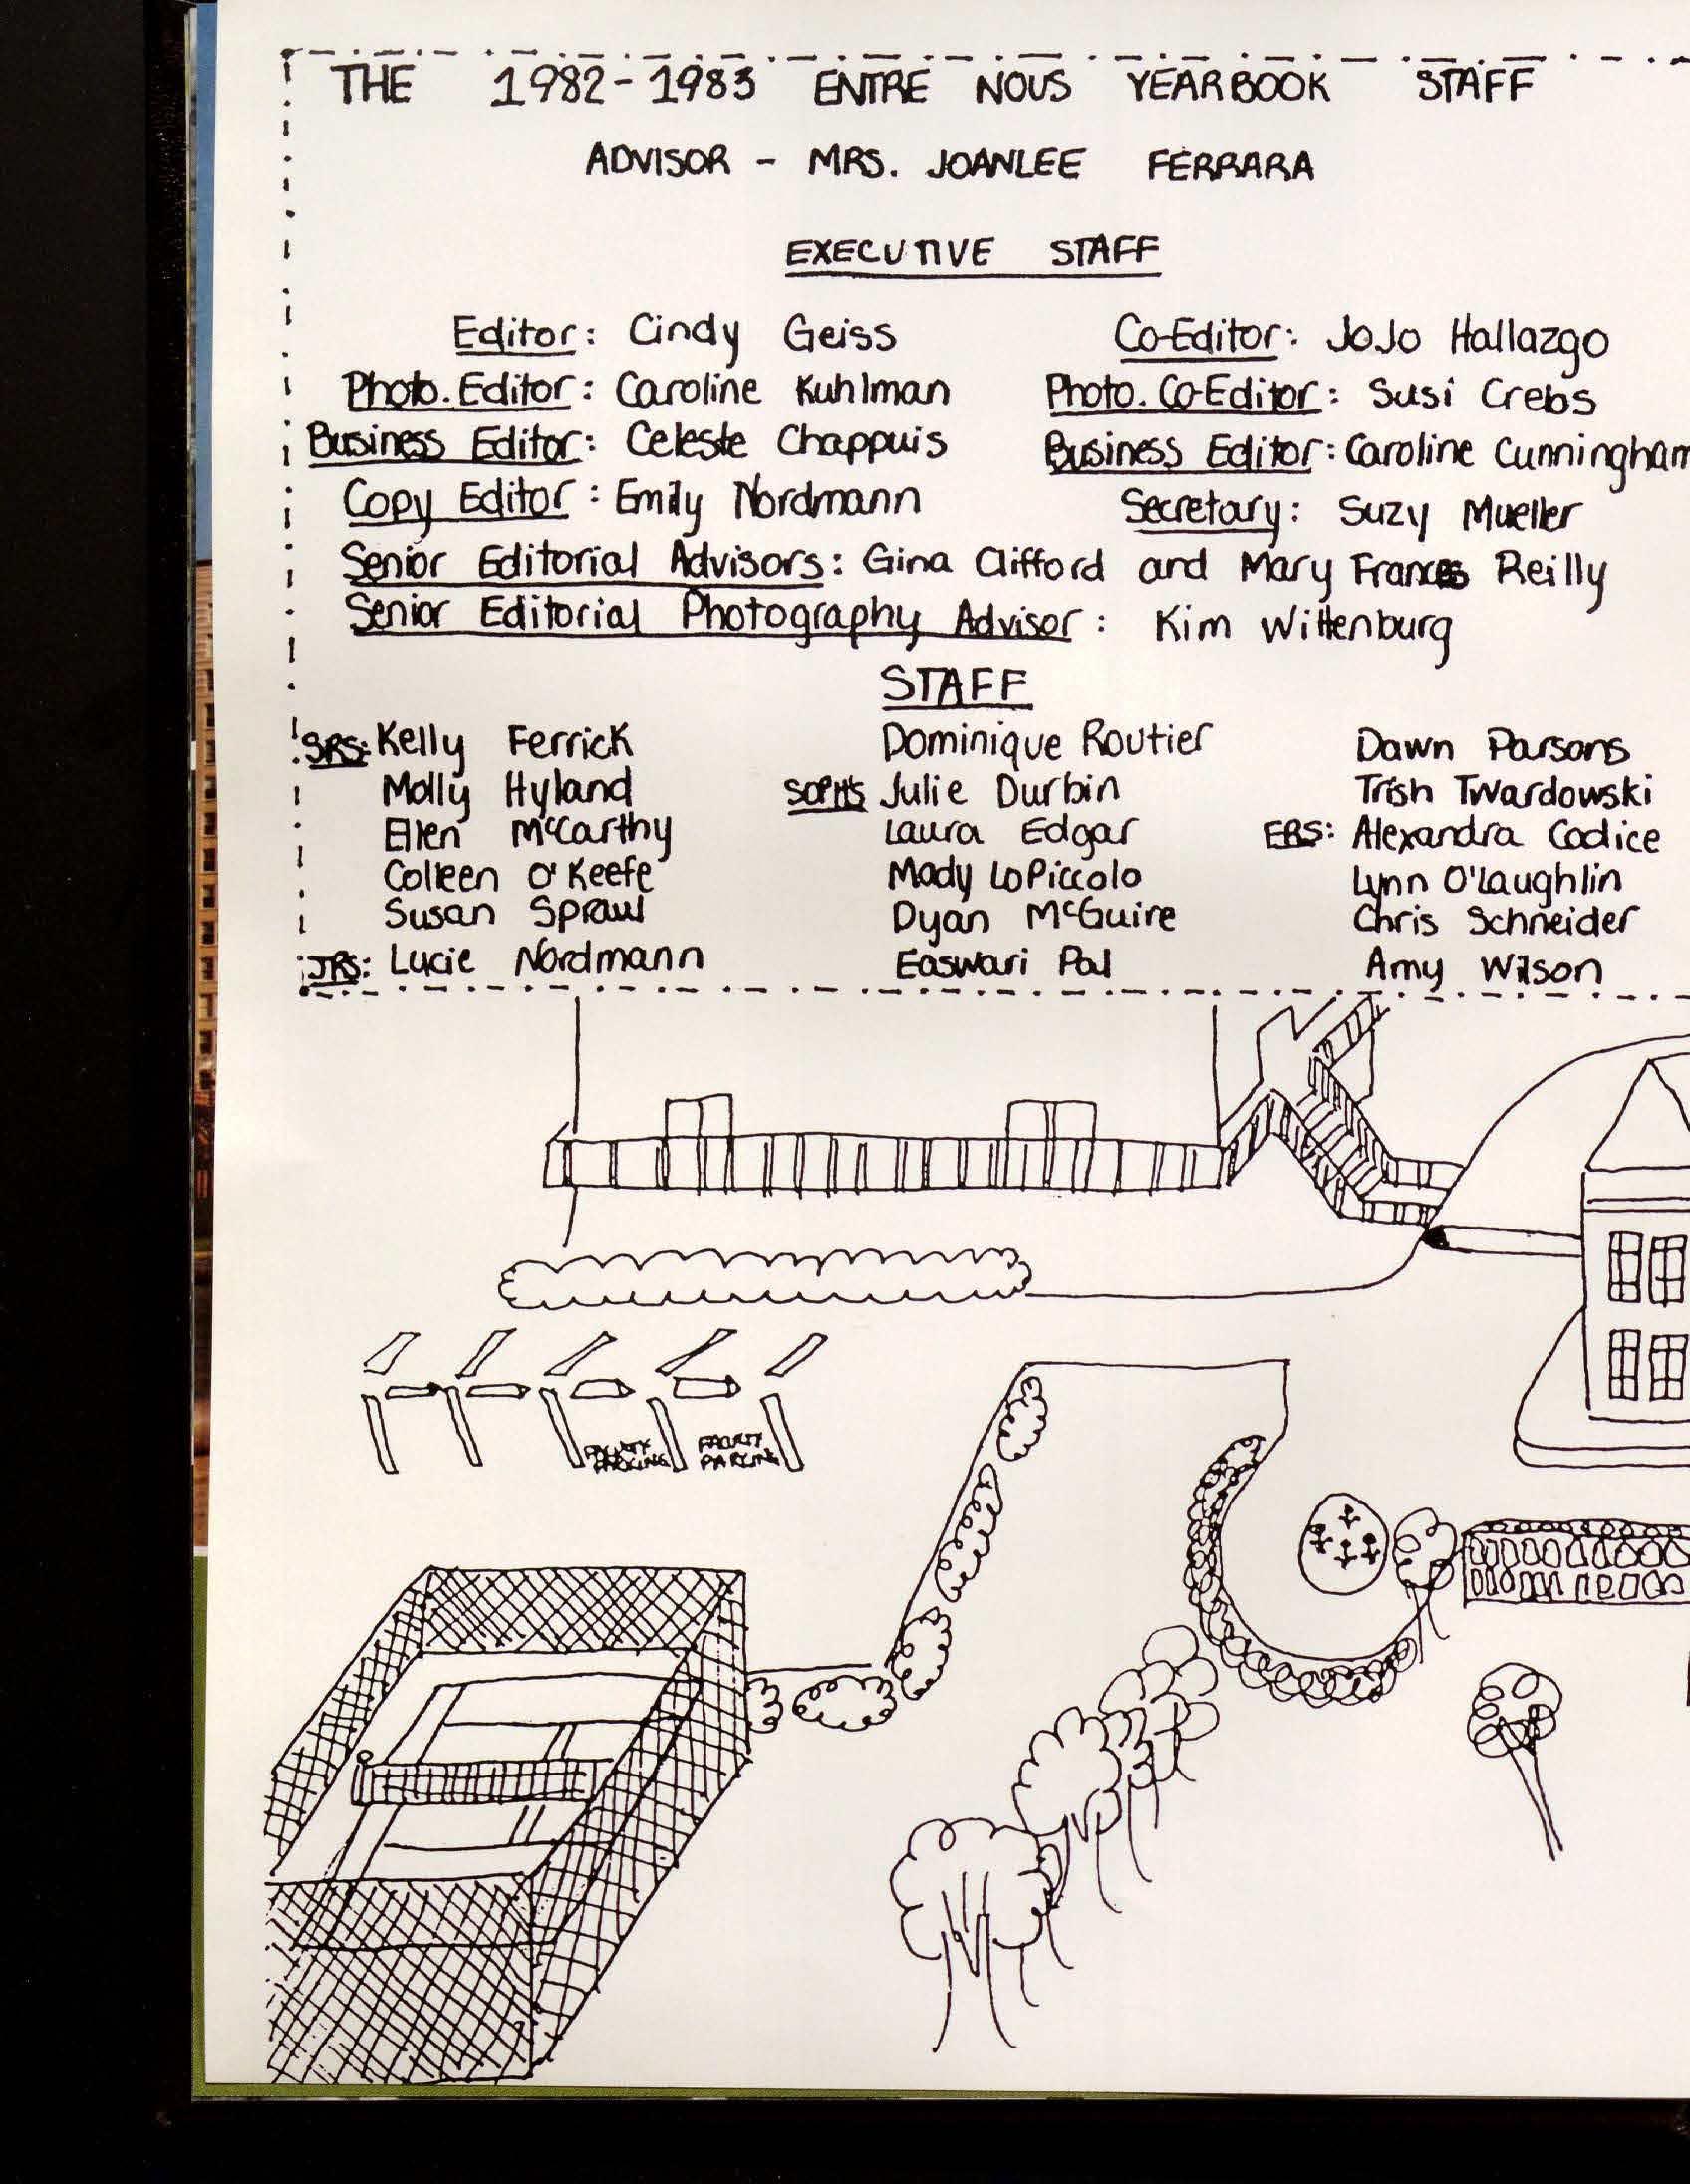 THE 1982-1983 ENTRE NOUS YEARBOOK STAFF
ADVISOR - MRS. JOANLEE FERRARA
EXECUTIVE STAFF
Editor: Cindy Geiss Co-Editor: JoJo Hallazgo
Photo. Editor: Caroline Kuhlman Photo. Co-Editor: Susi Crebs
Business Editor: Celeste Chappuis Business Editor: Caroline Cunningham
Copy Editor: Emily Nordmann Secretary: Suzy Mueller
Senior Editorial Advisors: Gina Clifford and Mary Frances Reilly
Senior Editorial Photography Advisor: Kim Wittenburg
STAFF
SRS: Kelly Ferrick Dominique Routier Dawn Parsons
Molly Hyland SOPHS Julie Durbin Trish Twardowski
Ellen McCarthy Laura Edgar FRS: Alexandra Codice
Colleen O'Keefe Mady LoPiccolo Lynn O'Laughlin
Susan Sprawl Dyan McGuire Chris Schneider
JRS: Lucie Nordmann Easwari Pal Amy Wilson
FACULTY PARKING
FACULTY PARKING